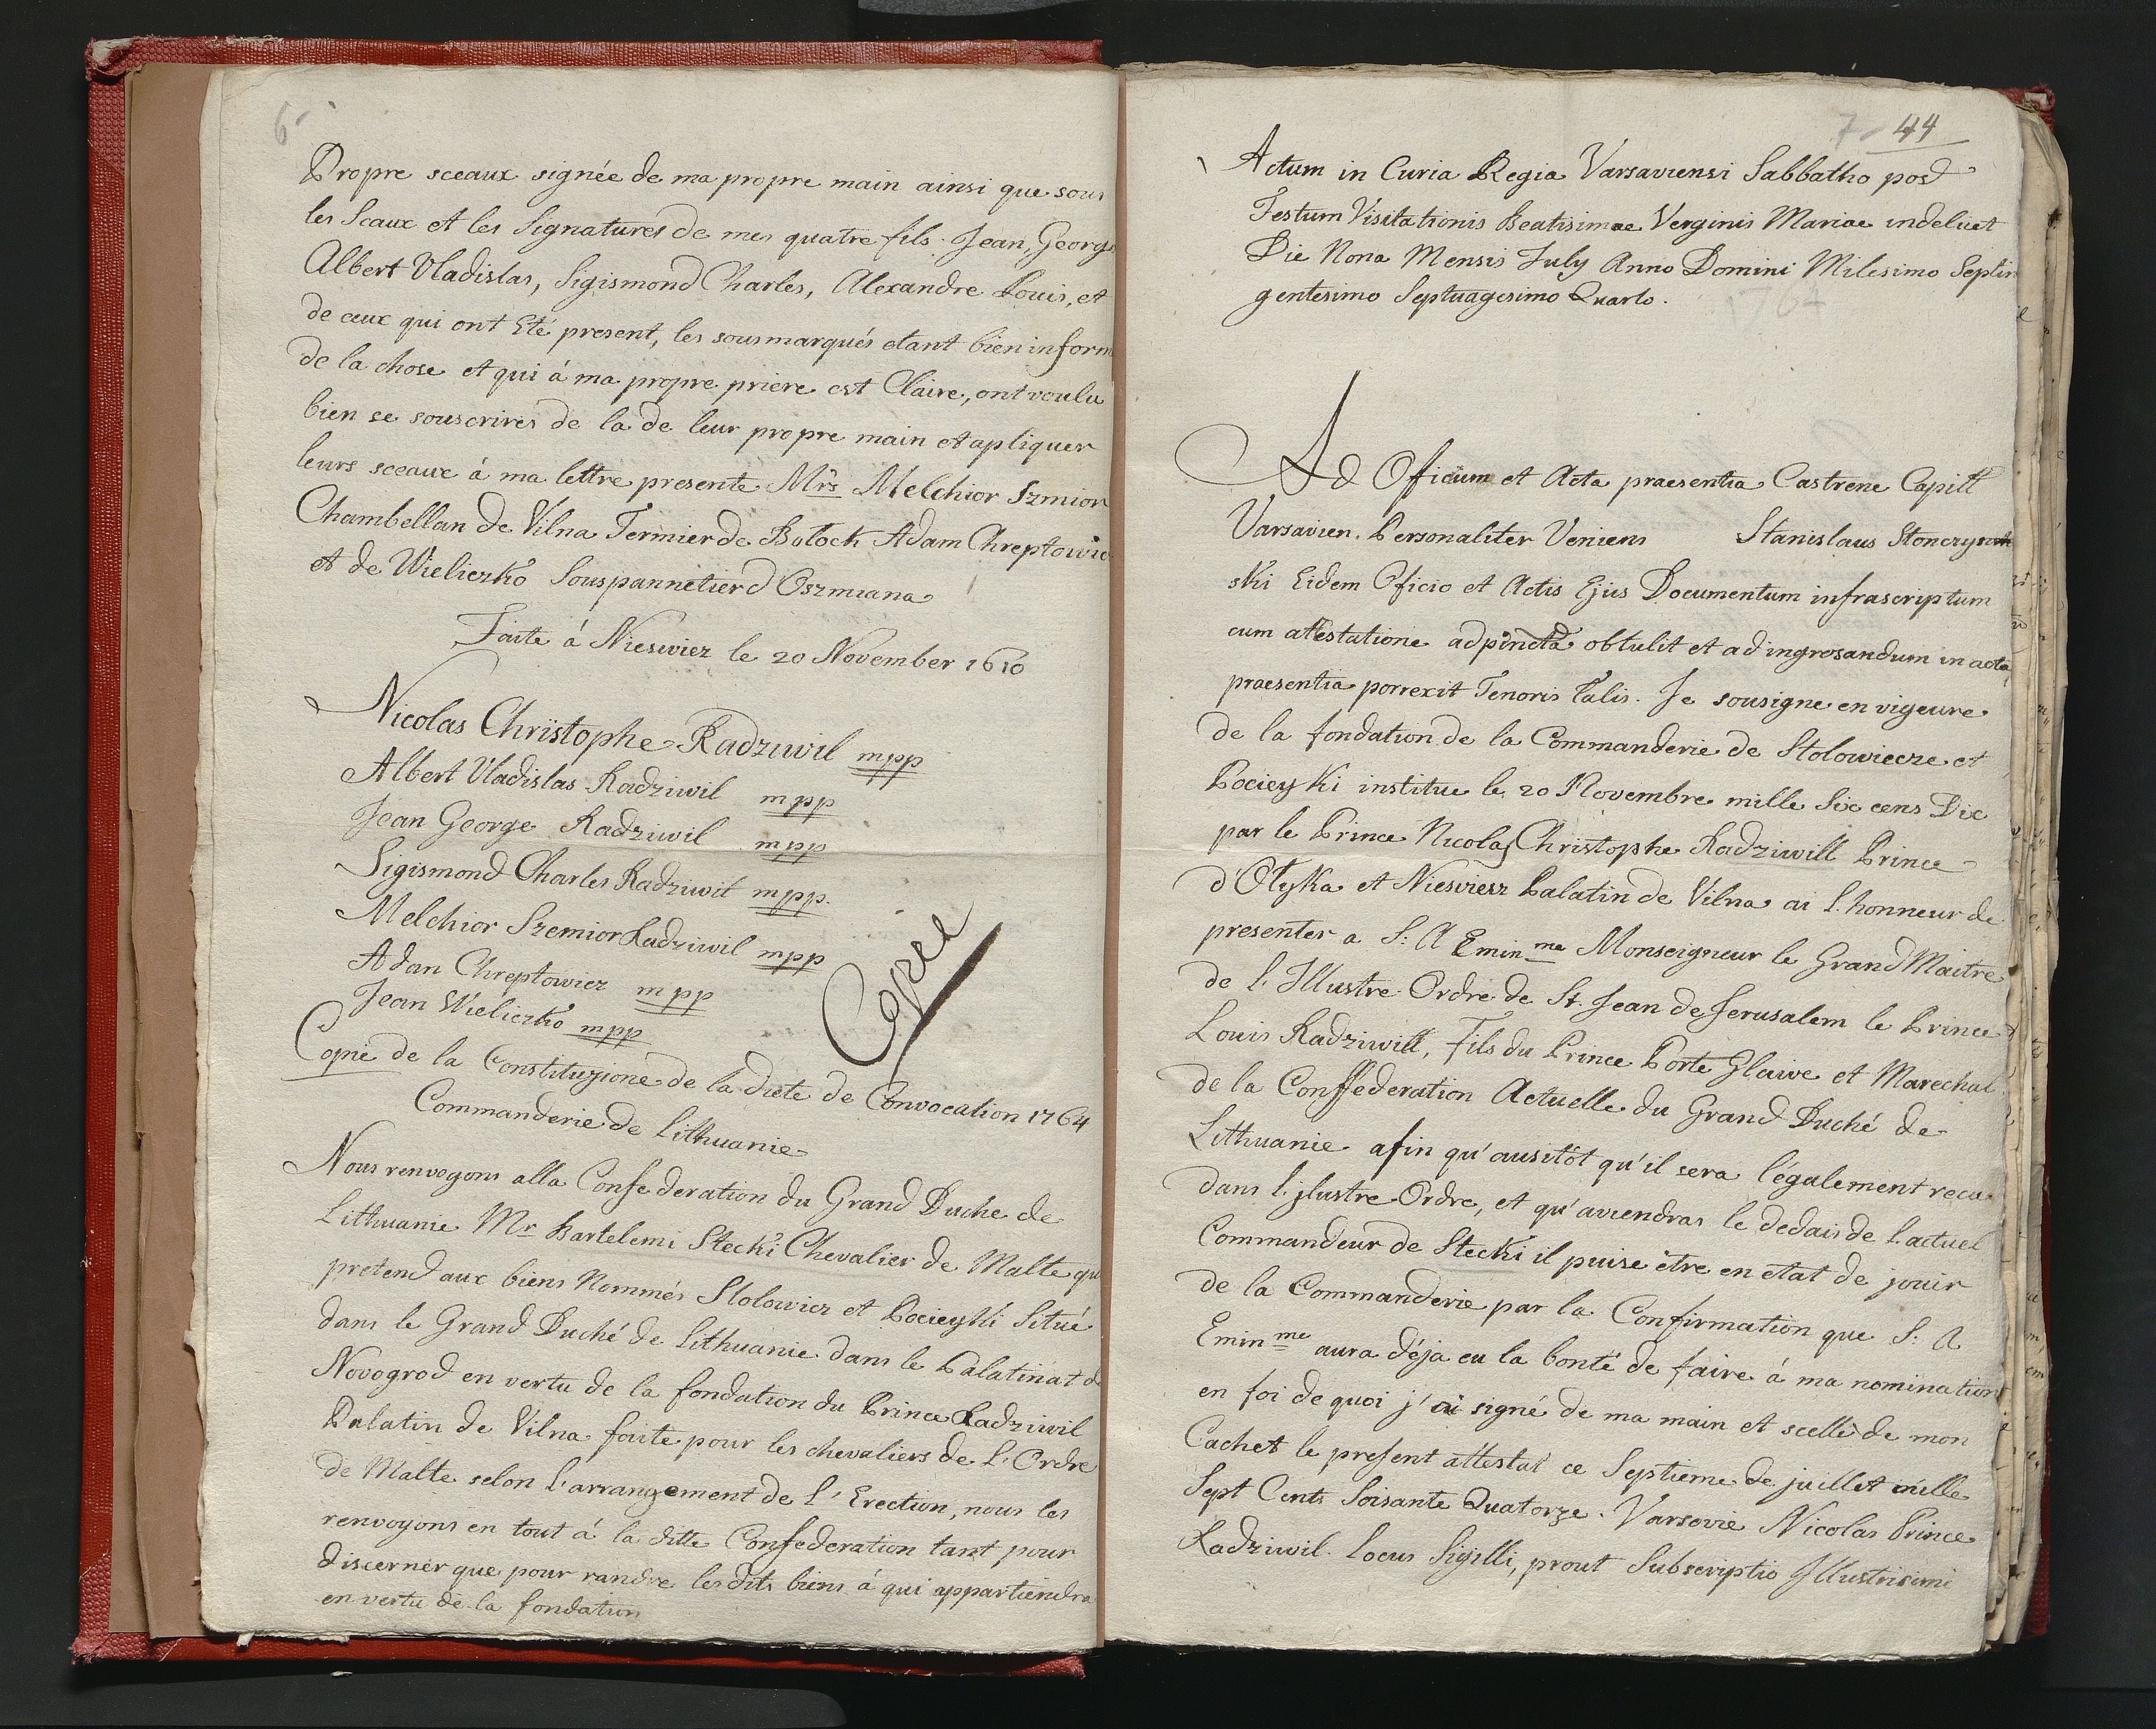 6-
Propre sceaux signée de ma propre main ainsi que sous
les Sceaux et les Signatures de mes quatre fils. Jean, George
Albert Uladislas, Sigismond Charles, Alexandre Louis, et
de ceux qui ont Eté present, les sousmarqués etant bien inform
de la chose et qui á ma propre priere est Claire, ont voulu
bien se souscrires de la de leur propre main et apliquer
leurs sceaux á ma lettre presente Mrs Melchior Szmior
Chambellan de Vilna Termier de Bolock Adam Chreptowic
et de Wieliczko Souspannetier d Oszmiana
Faite á Nieswiez le 20 November 1610
Nicolas Christophe Radziwil mpp
Albert Uladislas Radziwil mpp
Jean George Radziwil mpp
Sigismond Charles Radziwil mpp.
Melchior Szemior Radziwil mpp
Adan Chreptowicz mpp
Jean Wieliczko mpp
Copie de la Constituzione de la diete de Convocation 1764
Commanderie de Lithuanie
Nous renvegons alla Confederation du Grand Duche de
Lithuanie Mr Bartelemi Stecki Chevalier de Malte qu
pretend aux biens Nommés Stolowicz et Pocieyki Situé
dans le Grand Duché de Lithuanie dans le Palatinat d
Novogrod en vertu de la fondation du Prince Radziwil
Palatin de Vilna faite pour les chevaliers de L'Ordre
de Malte selon l'arrangement de l'Erection, nous les
renvoyons en tout á la ditte Confederation tant pour
discerner que pour randre lesdits biens á qui appartiendra
en vertu de la fondation
7- 44
Actum in Curia Regia Varsaviensi Sabbatho post
Festum Visitationis Beatisimae Verginis Mariae indelicet
Die Nona Mensis July Anno Domini Milesimo Septin
gentesimo Septuagesimo Quarto.
Ad Oficium et Acta praesentia Castrene Capitl
Varsavien. Personaliter Veniens Stanislaus Stonczyn
ski Eidem Oficio et Actis Ejus Documentum infrascriptum
cum attestatione ad pincta obtulit et ad ingrosandum in acta
praesentia porrexit Tenoris Talis. Je sousigne en vigeure
de la fondation de la Commanderie de Stolowiecze et
Pocieyki institue le 20 Novembre mille Six cens Dix
par le Prince Nicolas Christophe Radziwill Prince
d'Olyka et Niesviesz Palatin de Vilna ai l'honneur de
presenter a S: A Emin me Monseigneur le Grand Maitre
de l'Illustre Ordre de St. Jean de Jerusalem le Prince
Louis Radziwill, Fils du Prince Porte Glaive et Marechal
de la Conffederation Actuelle du Grand Duché de
Lithuanie afin qu'ausitôt qu'il sera l'également recu
dans l'jlustre Ordre, et qu'aviendras le dedais de l'actuel
Commandeur de Stecki il puise être en etat de jouir
de la Commanderie par la Confirmation que S. A
Emin me aura déja eu la bonté de faire á ma nomination
en foi de quoi j'ai signé de ma main et scellè de mon
Cachet le present attestat ce Septieme de juillet mille
Sept Cents Soisante Quatorze. Varsovie Nicolas Prince
Radziwil. Locus Sigilli, prout Subscriptio Illustrisimi